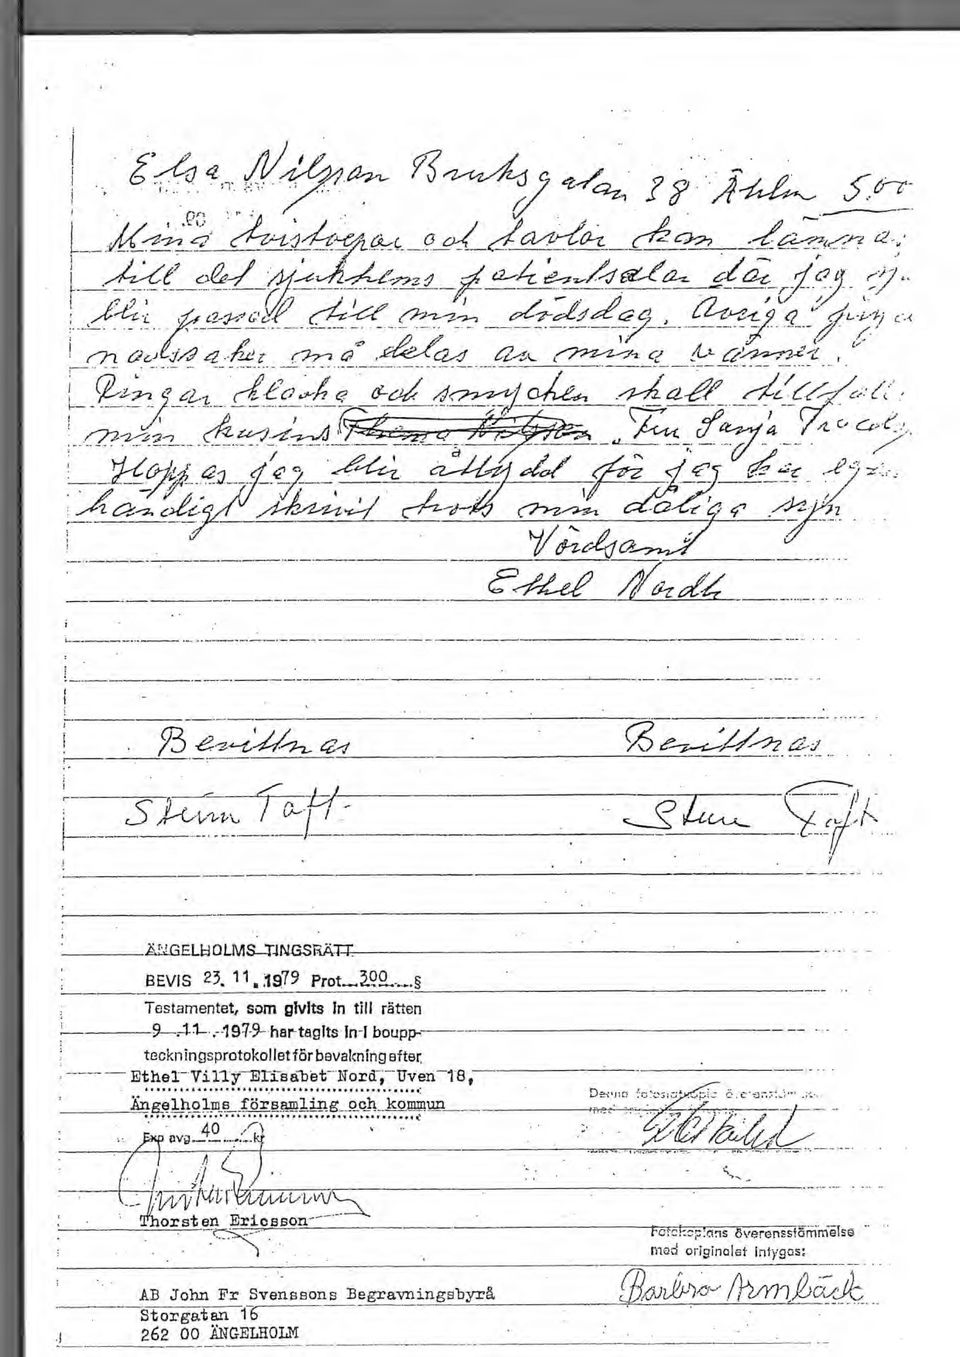 Elsa Nilsson Bruksgatan 38 Åhlm 500
Mina tvistvepar och tavlor kan lämna
till det sjukhems patientsalar där jag
blir passad till min dödsdag. Övriga
må delas av mina vänner.
Ringar klocka och smycken skall tillfall
min kusins Fru Sanja
Hoppas jag blir åtlydd för jag har egen
händigt skrivit trots min dåliga syn
Vördsamt
Ethel Nordh
Bevittnas Bevittnas
Taft Sture Taft
ÄNGELHOLMS TINGSRÄTT
BEVIS 23. 11. 1979 Prot. 300 §
Testamentet, som givits in till rätten
9 .11 .1979 har tagits in i boupp-
teckningsprotokollet för bevakning efter
Ethel Villy Elisabet Nord, Uven 18,
Ängelholms församling och kommun
Exp avg 40 kr
Thorsten Ericsson
Denna fotostatkopia överensstämmer
med
Fotokopians överensstämmelse
med originalet intygas:
Barbro Armbäck
AB John Fr Svenssons Begravningsbyrå
Storgatan 16
262 00 ÄNGELHOLM